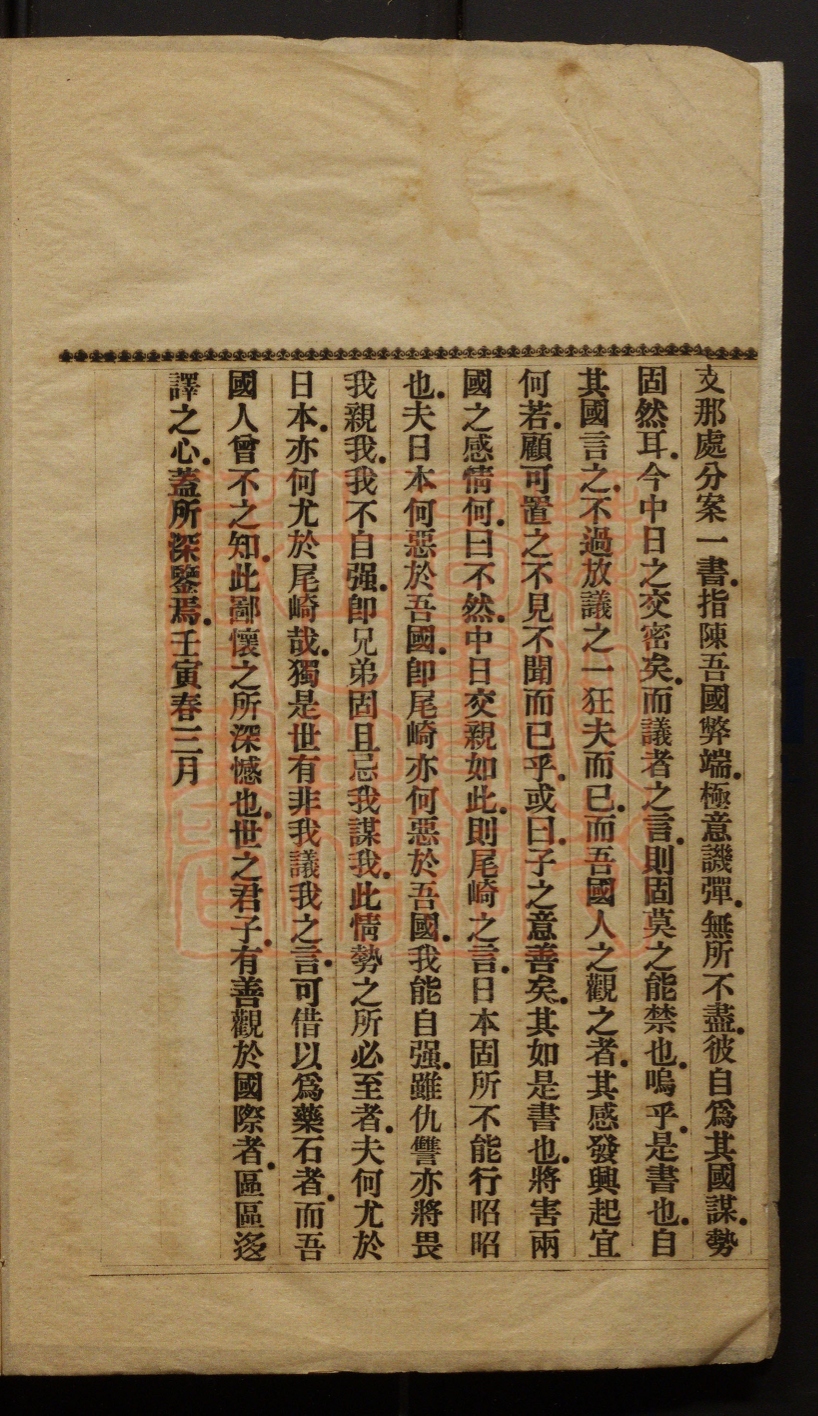 支那處分案一書.指陳吾國弊端.極意譏彈.無所不盡.彼自爲其國謀.勢
固然耳.今中日之交密矣.而議者之言.則固莫之能禁也.嗚乎.是書也.自
其國言之.不過放議之一狂夫而已.而吾國人之觀之者.其感發興起宜
何若.顧可置之不見不聞而已乎.或曰.子之意善矣.其如是書也.將害兩
國之感情何.曰不然.中日交親如此.則尾崎之言.日本固所不能行昭昭
也.夫日本何惡於吾國.卽尾崎亦何惡於吾國.我能自强.雖仇讐亦將畏
我親我.我不自强.卽兄弟固且忌我謀我.此情勢之所必至者.夫何尤於
日本.亦何尤於尾崎哉.獨是世有非我議我之言.可借以爲藥石者.而吾
國人曾不之知.此鄙懷之所深憾也.世之君子.有善觀於國際者.區區迻
譯之心.蓋所深鑒焉.壬寅春三月